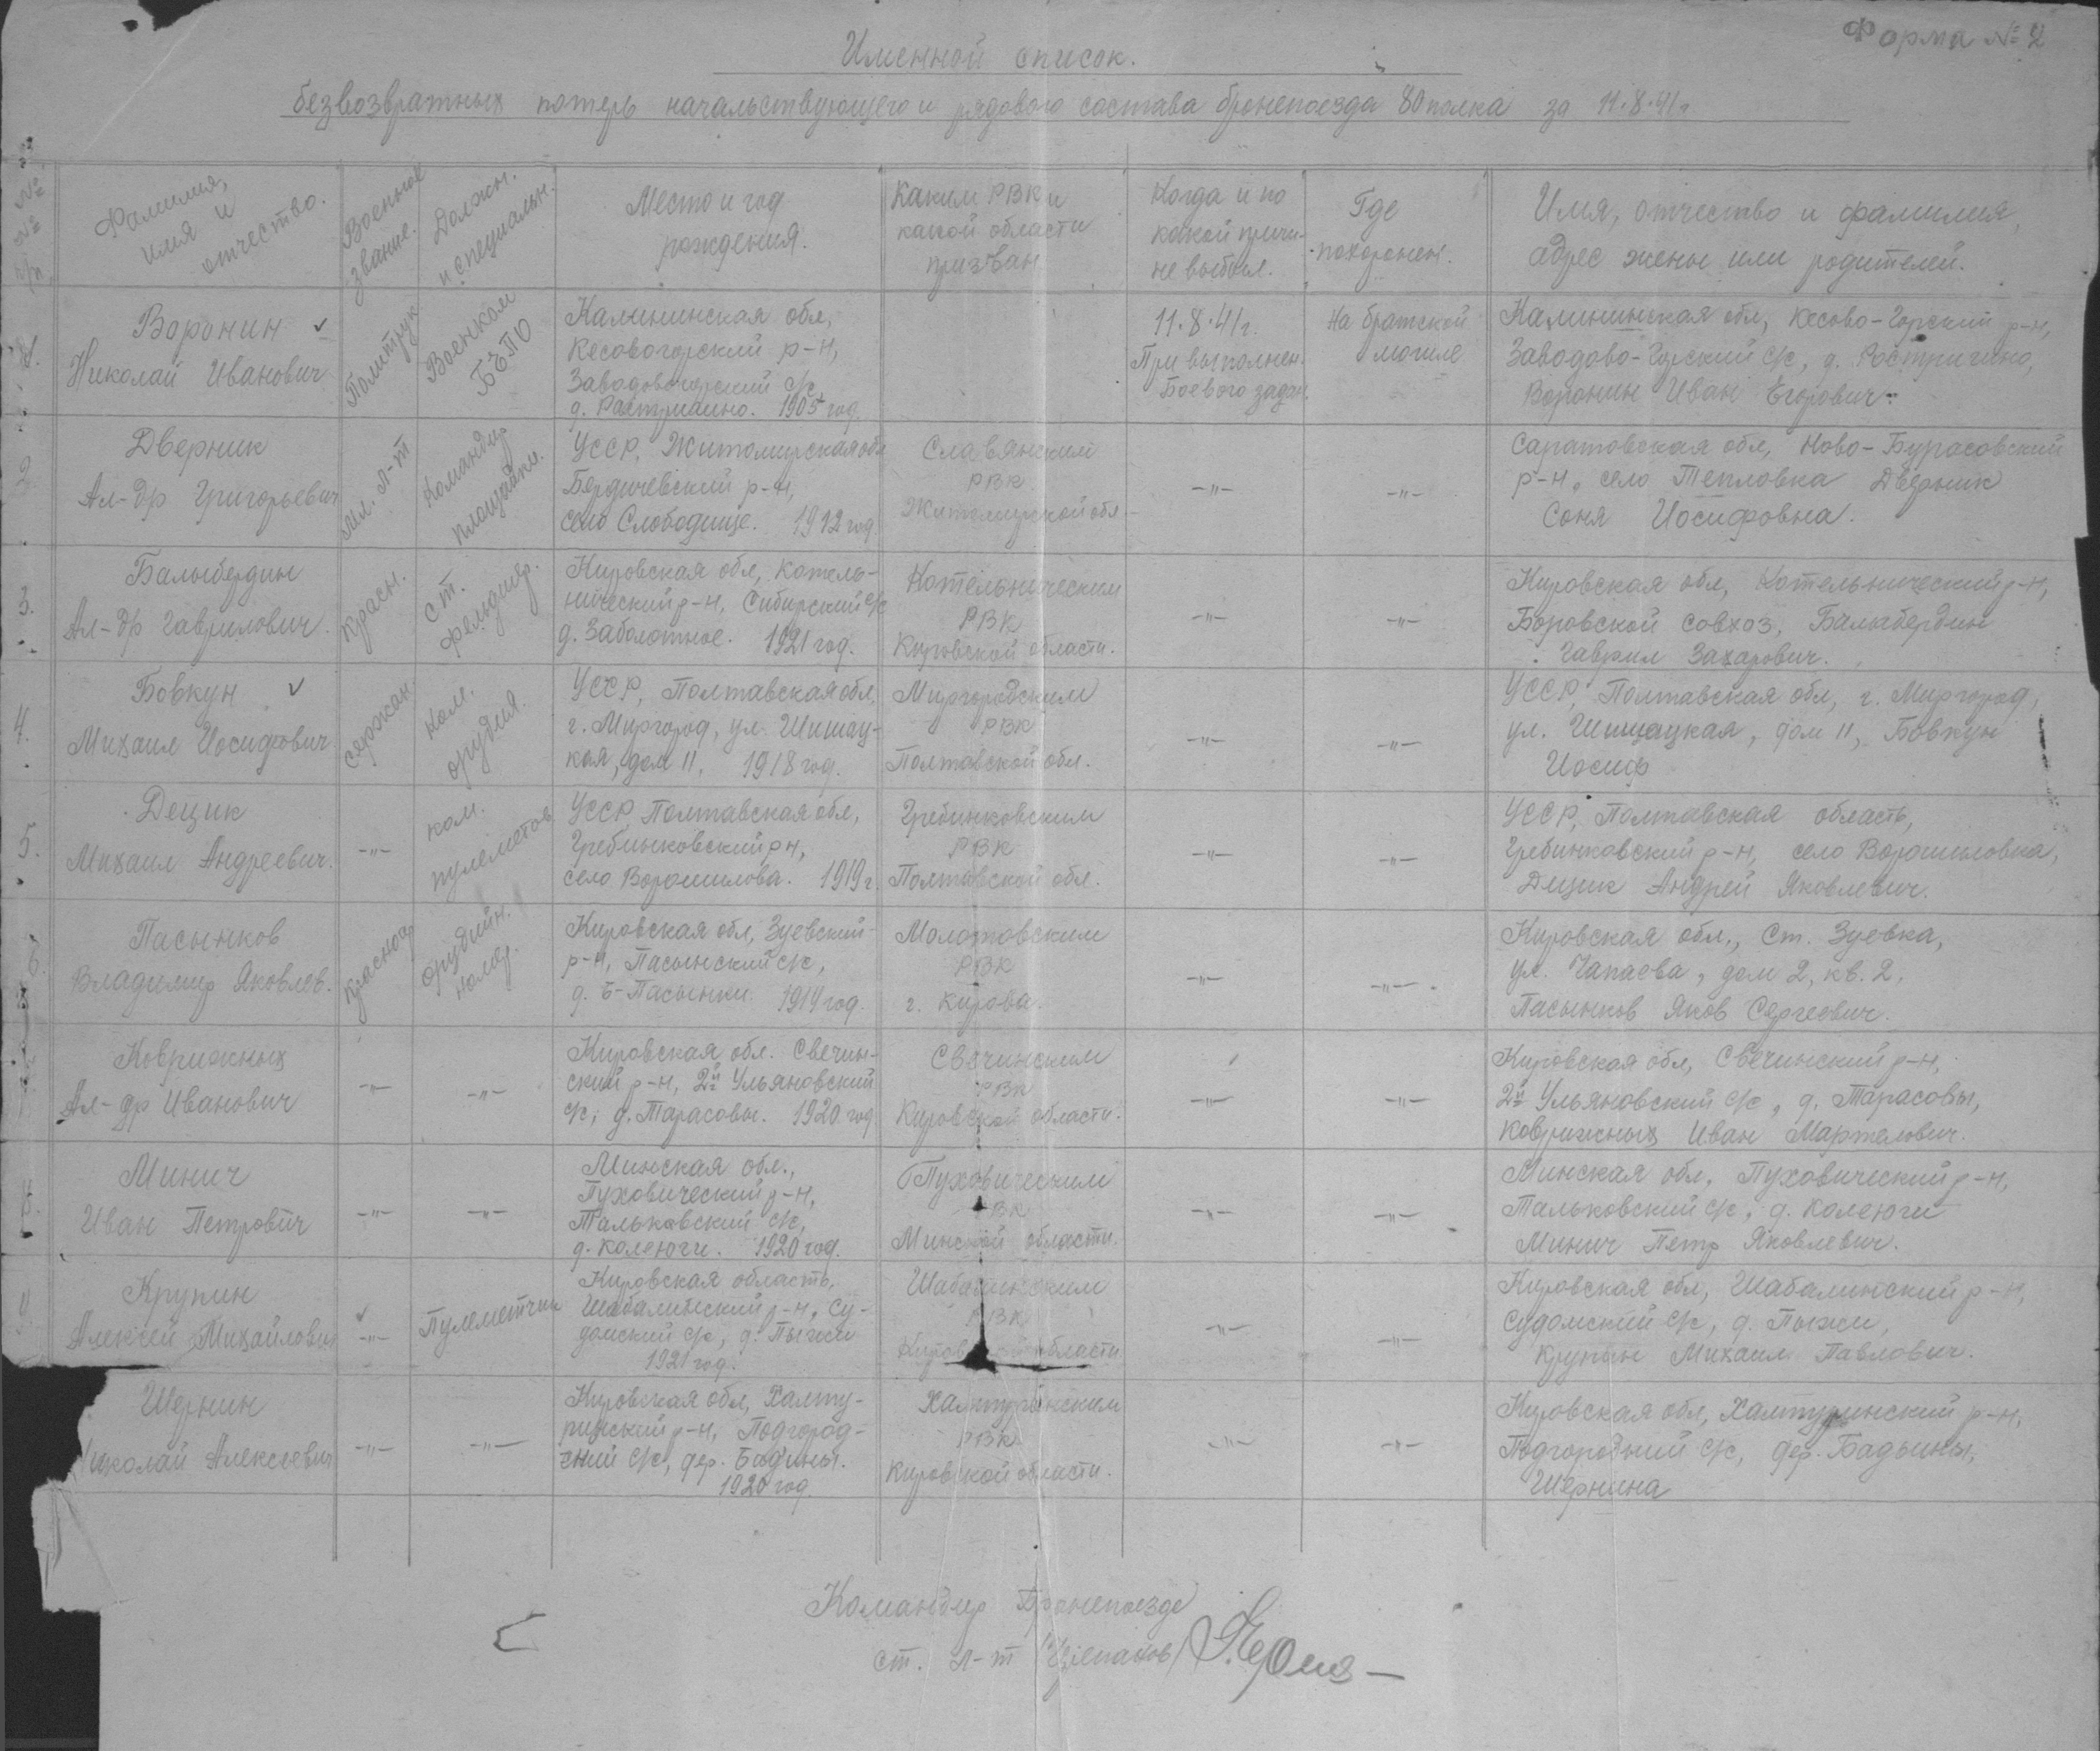 Форма № 2
Именной список.
безвозвратных потерь начальствующего и рядового состава бронепоезда 80 полка за 11.8.41 г.
№ № п/п
Фамилия, имя и отчество.
Военное звание.
Должн. и специальн.
Место и год рождения.
Каким РВК и какой области призван
Когда и по какой причи-не выбыл.
Где похоронен.
Имя, отчество и фамилия, адрес жены или родителей.
1.
Воронин
Николай Иванович
Политрук
Военком БЕПО
Калининская обл,
Кесовогорский р-н,
Заводовогорский с/с
д. 1905 год
11.8.41г.
При выполнен.
Боевого задан.
На братской
могиле
Калининская обл, Кесово-Горский р-н,
Заводово-Горский с/с, д.
Воронин Иван Егорович.
2
Дверник
Ал-др Григорьевич
мл. л-т
Командир площадки.
УССР, Житомирская обл
Бердичевский р-н,
село Слободище. 1912 год
Славянским
РВК
Житомирской обл.
-"-
-"-
Саратовская обл, Ново-Бурасовский
р-н, село Тепловка Дверник
Соня Иосифовна.
3.
Балыбердин
Ал-др Гаврилович.
Красн.
ст. фельдшер.
Кировская обл, Котель-
нический р-н, Сибирский с/с
д. Заболотное. 1921 год.
Котельническим
РВК
Кировской области.
-"-
-"-
Кировская обл, Котельнический р-н,
Боровской совхоз, Балыбердин
Гаврил Захарович.
4.
Бовкун
Михаил Иосифович
сержан.
Ком. орудия.
УССР, Полтавская обл,
г. Миргород, ул. Шишац-
кая, дом 11, 1918 год.
Миргородским
РВК
Полтавской обл.
-"-
-"-
УССР, Полтавская обл, г. Миргород,
ул. Шишацкая, дом 11, Бовкун
Иосиф
5.
Децик
Михаил Андреевич.
-"-
ком. пулеметов
УССР, Полтавская обл,
Гребинковский р-н,
село Ворошилова. 1919 г.
Гребинковским
РВК
Полтавской обл.
-"-
-"-
УССР, Полтавская область,
Гребинковский р-н, село Ворошиловка,
Децик Андрей Яковлевич.
6.
Пасынков
Владимир Яковлев.
Красноар
орудийн. номер.
Кировская обл, Зуевский
р-н, Пасынский с/с,
д. Б-Пасынки. 1914 год.
Молотовским
РВК
г. Кирова.
-"-
-"-
Кировская обл., ст. Зуевка,
ул. Чапаева, дом 2, кв. 2.
Пасынков Яков Сергеевич.
Коврижных
Ал-др Иванович
-"-
-"-
Кировская обл. Свечин-
ский р-н, 2й Ульяновский
с/с, д. Тарасовы. 1920 год
Свечинским
РВК
Кировской области.
-"-
-"-
Кировская обл, Свечинский р-н,
2й Ульяновский с/с, д. Тарасовы,
Коврижных Иван Мартелович.
8.
Минич
Иван Петрович
-"-
-"-
Минская обл.,
Пуховический р-н,
Тальковский с/с,
д. Колеюги. 1920 год.
Пуховическим
РВК
Минской области.
-"-
-"-
Минская обл, Пуховический р-н,
Тальковский с/с, д. Колеюги
Минич Петр Яковлевич.
Крупин
Алексей Михайлович
-"-
Пулеметчик
Кировская область,
Шабалинский р-н, Су-
домский с/с, д. Пыжи
1921 год.
Шабалинским
РВК
Кировской области
-"-
-"-
Кировская обл, Шабалинский р-н,
Судомский с/с, д. Пыжи,
Крупин Михаил Павлович.
Шернин
Николай Алексеевич
-"-
-"-
Кировская обл, Халту-
ринский р-н, Подгород-
ний с/с, дер. Бадьины.
1920 год
Халтуринским
РВК
Кировской области.
-"-
-"-
Кировская обл, Халтуринский р-н,
Подгородний с/с, дер. Бадьины,
Шернина
Командир Бронепоезда
ст. л-т